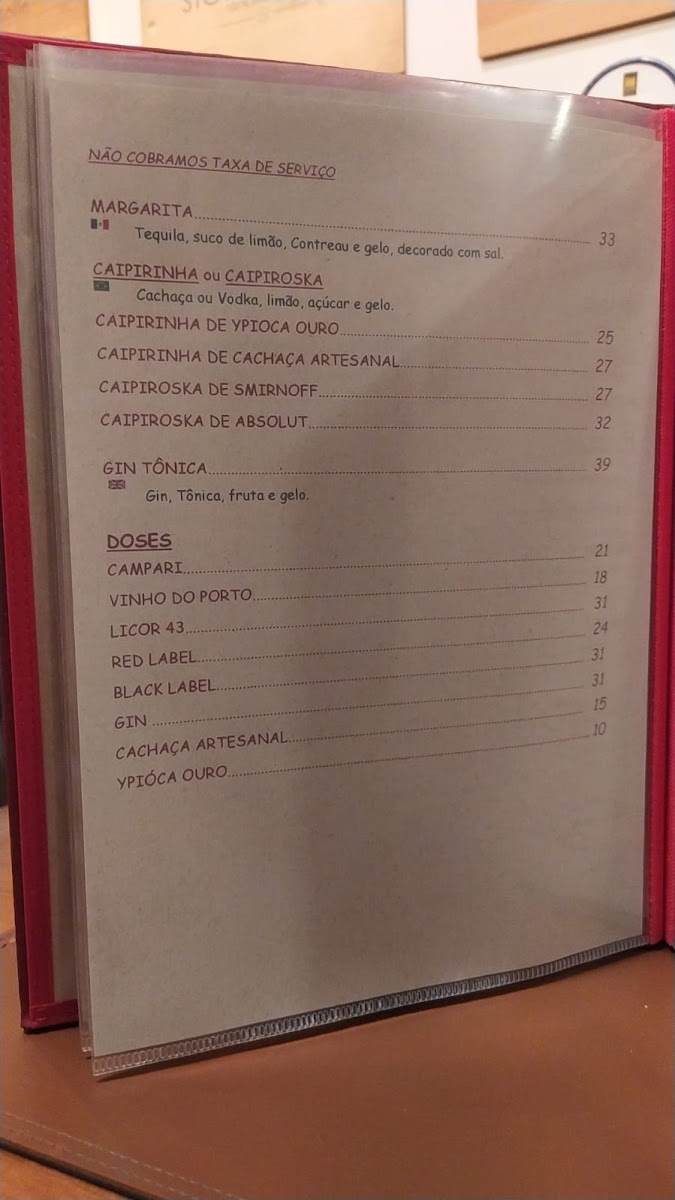 NÃO COBRAMOS TAXA DE SERVIÇO
MARGARITA 33
Tequila, suco de limão, Contreau e gelo, decorado com sal.
CAIPIRINHA ou CAIPIROSKA
Cachaça ou Vodka, limão, açúcar e gelo.
CAIPIRINHA DE YPIOCA OURO 25
CAIPIRINHA DE CACHAÇA ARTESANAL 27
CAIPIROSKA DE SMIRNOFF 27
CAIPIROSKA DE ABSOLUT 32
GIN TÔNICA 39
Gin, Tônica, fruta e gelo.
DOSES
CAMPARI 21
VINHO DO PORTO 18
LICOR 43 31
RED LABEL 24
BLACK LABEL 31
GIN 31
CACHAÇA ARTESANAL 15
YPIÓCA OURO 10